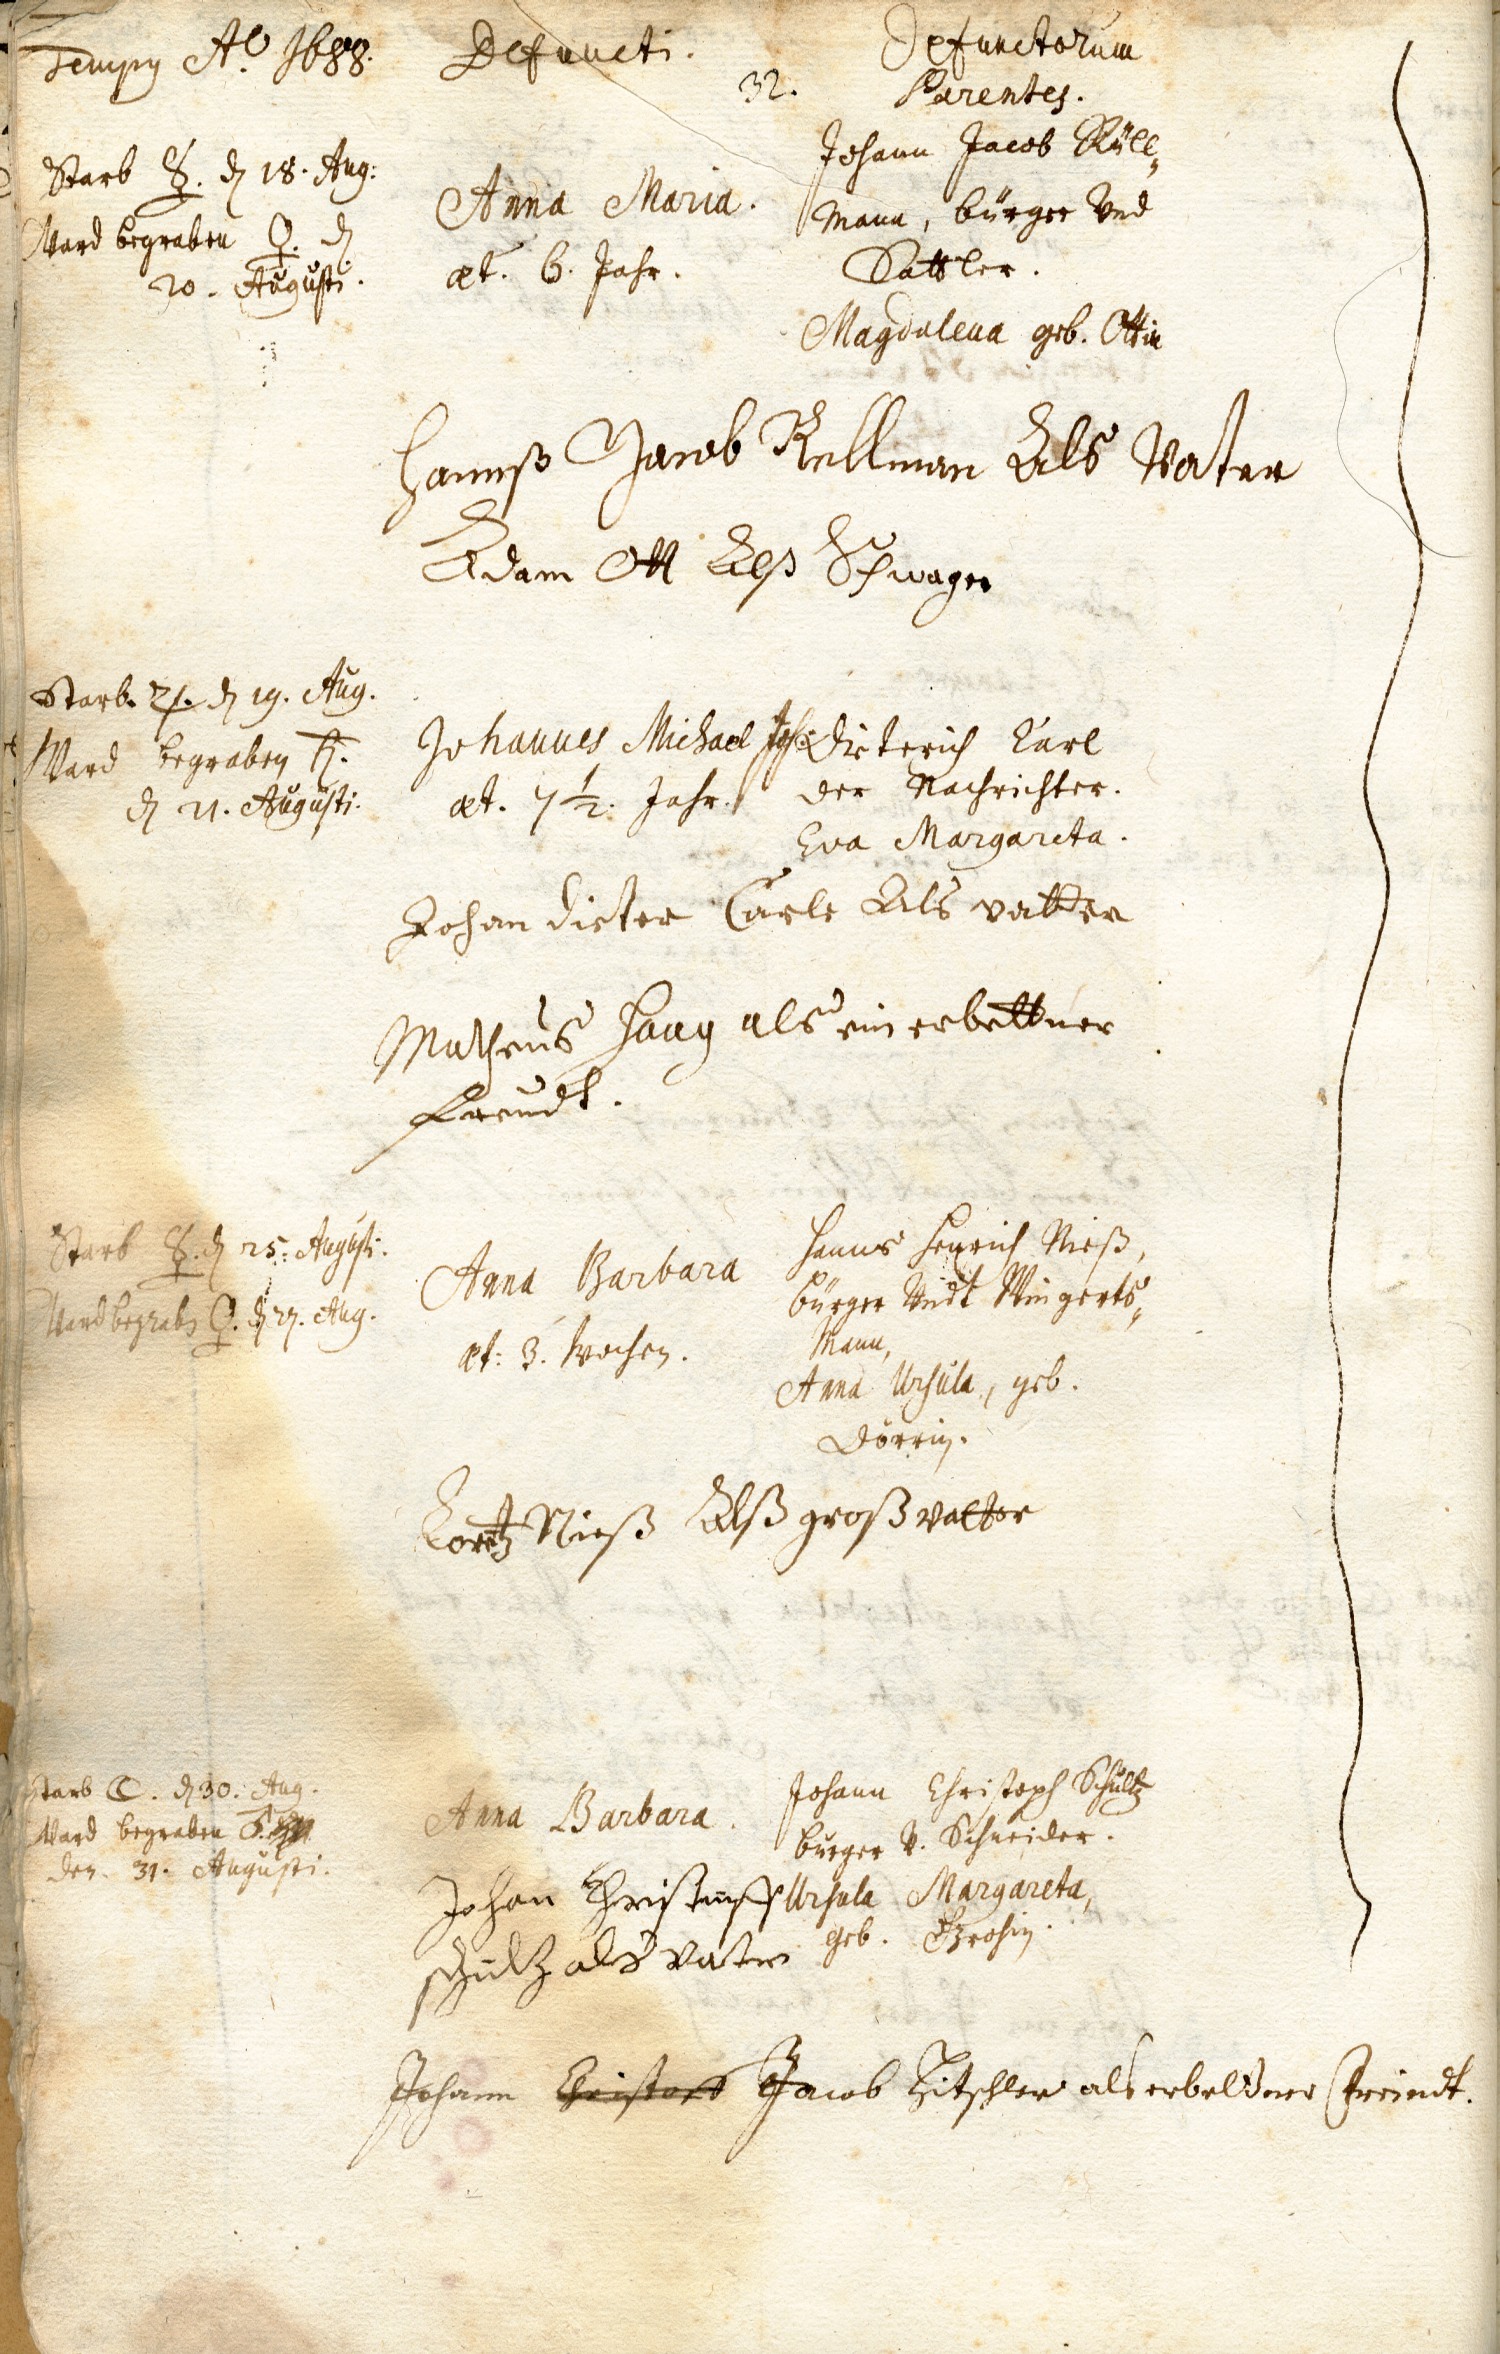 Tempq Aō 1688.
Defuncti.
32.
Defunctorum
Parentes.
Starb ☿. d 18. Aug:
Ward begraben ♀. d
20. Augusti.
Anna Maria.
æt. 6. Jahr.
Johann Jacob Rüll„
mann, bürger Und
Sattler.
Magdalena geb. Ottin
Hannß Jacob Rellman Als Vater
Adam Ott Alß Schwager
Starb. ♃. d 19. Aug.
Ward begraben ♄.
d 21. Augusti.
Johannes Michael
æt. 7 1/2. Jahr.
Joh: Dieterich Carl
der Nachrichter.
Eva Margareta.
Johan dieter Carle Als vatter
Matheus Haag als ein erbettner
freudt.
Starb ☿. d 25. Augusti.
Ward begrabn ♀. d 27. Aug.
Anna Barbara
æt: 3. Wochen.
Hanns Henrich Nieß,
bürger Undt Wingerts„
Mann,
Anna Ursula, geb.
Dörrin.
Lorentz Nieß Alß großvatter
Starb ☾. d 30. Aug.
Ward begraben
den. 31. Augusti.
Anna Barbara.
Johann Christoph Schultz
burger V. Schneider.
Ursula Margareta,
geb.
Johan Christoff
schultz als Vater
Johann Christoff Jacob Zitschler als erbeldner freindt.